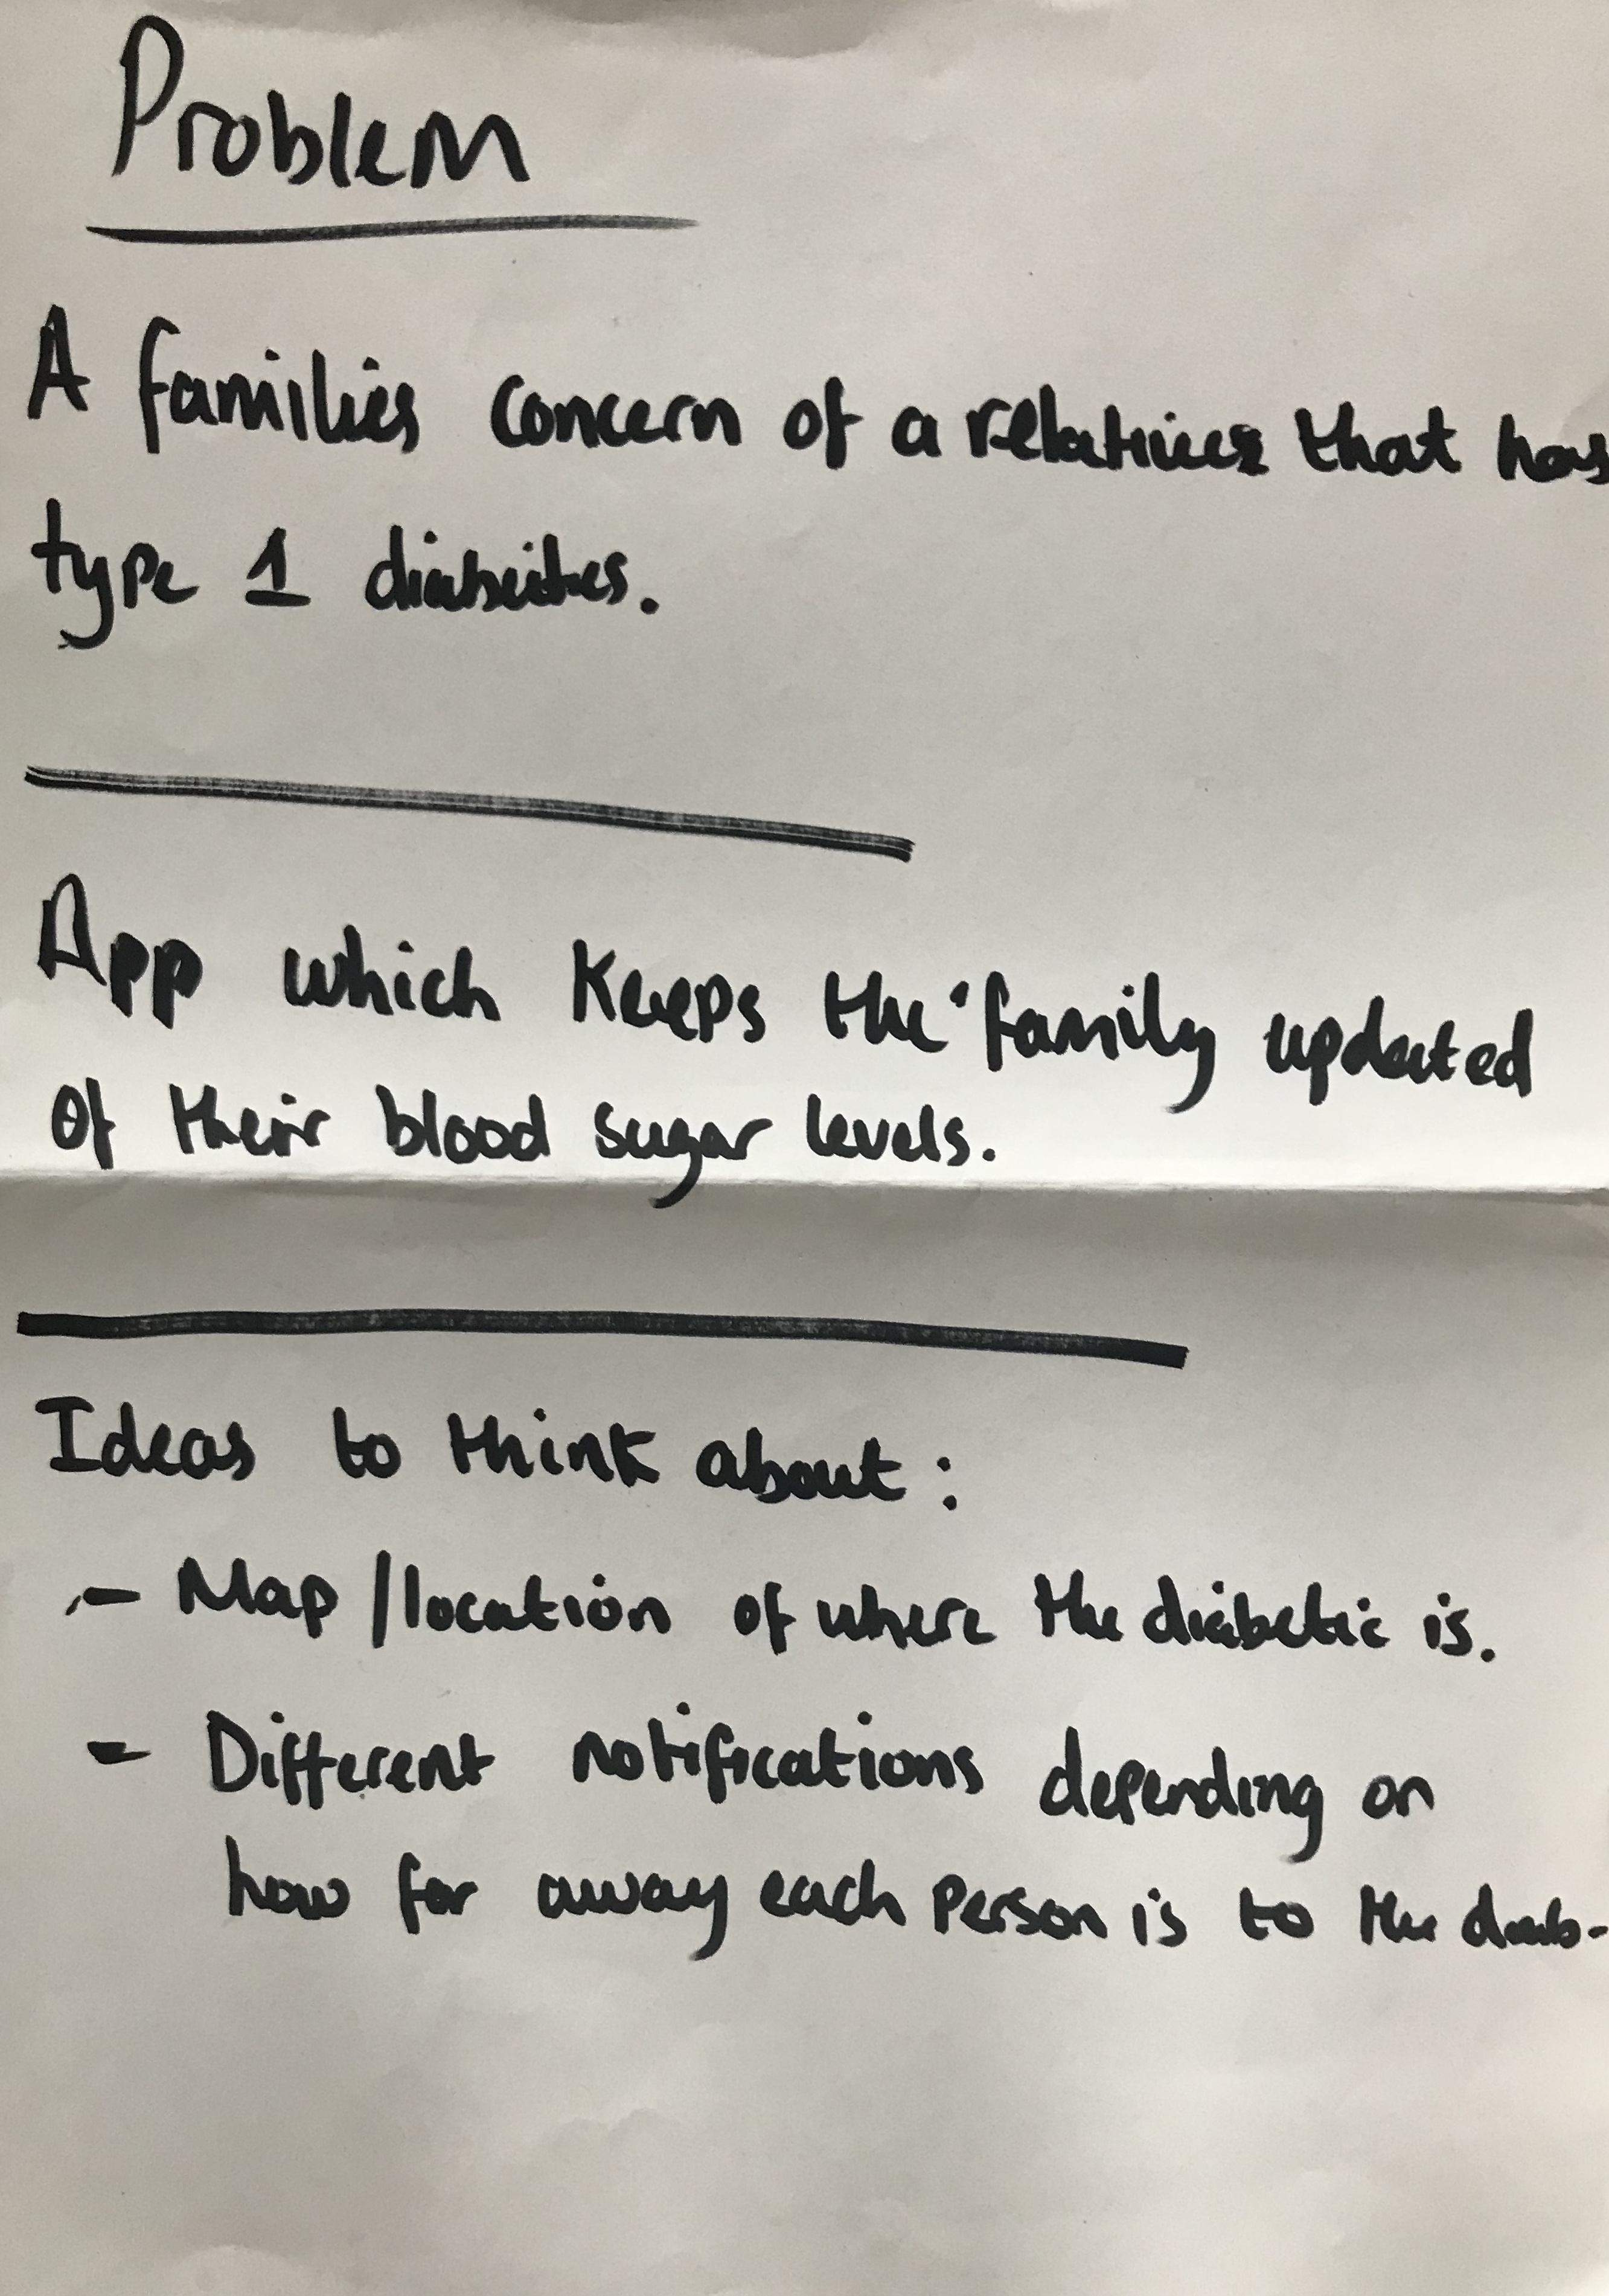 Problem
A families concern of a relatives that has
type 1 diabeites.
App which keeps the family updated
of their blood sugar levels.
Ideas to think about :
- Map / location of where the diabetic is.
- Different notifications depending on
how far away each person is to the diab-